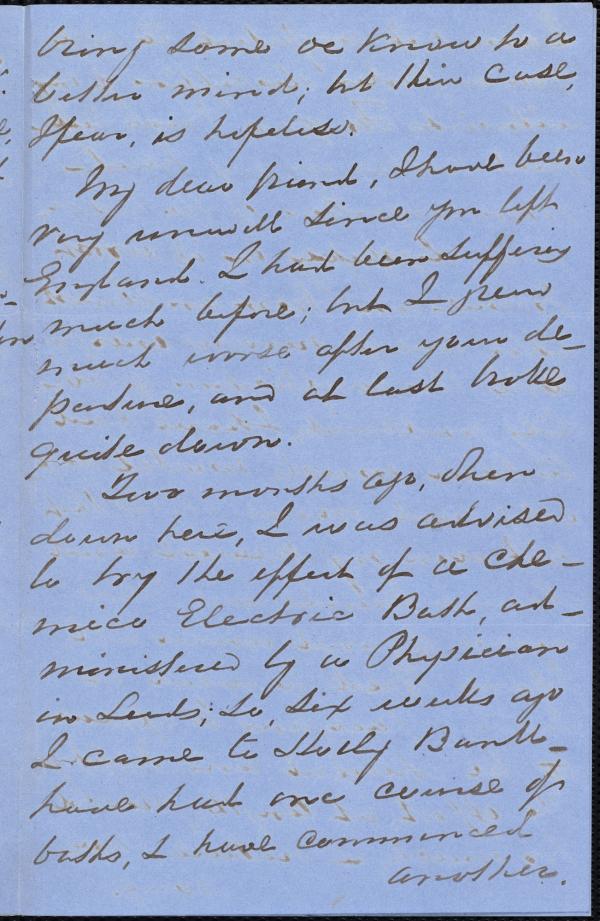 bring some we know to a
better mind; but this case,
I fear, is hopeless.
My dear friend, I have been
very unwell since you left
England. I had been suffering
much before; but I grew
much worse after your de-
parture, and at last broke
quite down.
Two months ago, when
down here, I was advised
to try the effect of a Che-
mico Electric Bath, ad-
ministered by a Physician
in Leeds; so, six weeks ago
I came to Holly Bank-
have had one course of
baths, & have commenced
another.